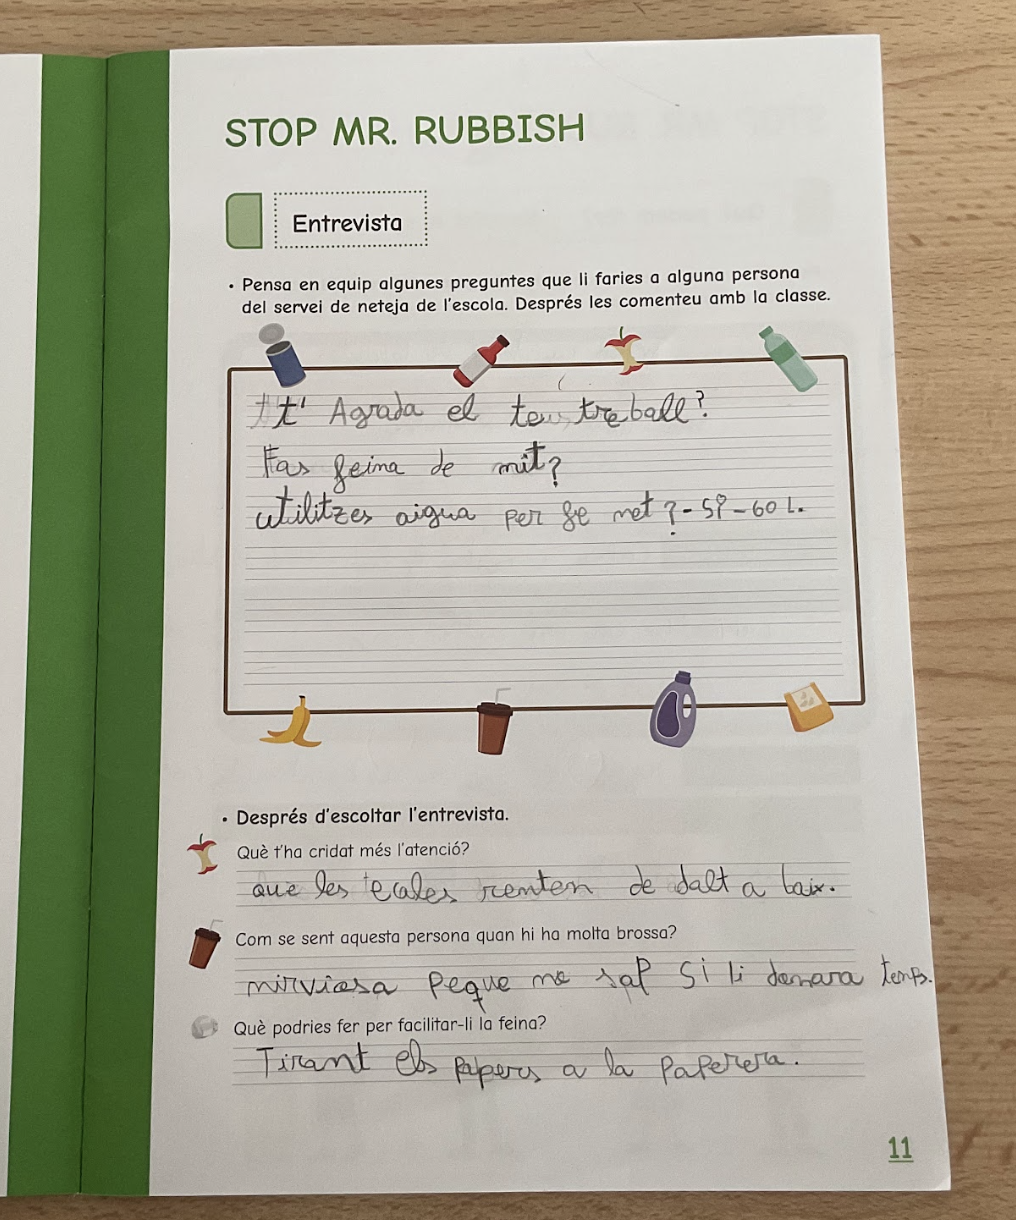 STOP MR. RUBBISH
Entrevista
• Pensa en equip algunes preguntes que li faries a alguna persona
del servei de neteja de l'escola. Després les comenteu amb la classe.
t' Agrada el teu treball?
Fas feina de mit?
utilitzes aigua per fe met?-Si-60 L.
• Després d'escoltar l'entrevista.
Què t'ha cridat més l'atenció?
que les ecales renten de dalt a baix.
Com se sent aquesta persona quan hi ha molta brossa?
nirviosa Peque no sap si li donara temps.
Què podries fer per facilitar-li la feina?
Tirant els papers a la Paperera.
11